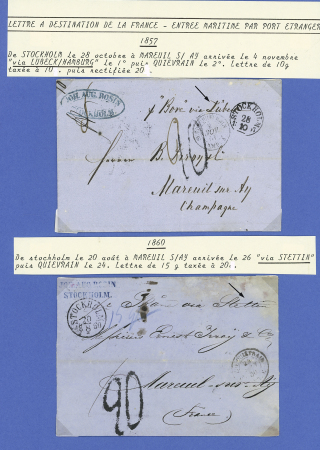 LETTRE A DESTINATION DE LA FRANCE - ENTREE MARITIME PAR PORT ETRANGER
1857
De STOCKHOLM le 28 octobre à MAREUIL S/ AY arrivée le 4 novembre
"via LUBECK/HAMBURG" le 1° puis QUIEVRAIN le 2°. lettre de 10g
taxée à 10 . puis rectifiée 20 .
STOCKHOLM
28
10
20
Mareuil sur Ay
Champagne
1860
De stockholm le 20 août à MAREUIL S/AY arrivée le 26 "via STETTIN"
puis QUIEVRAIN le 24. lettre de 15 g taxée à 20..
STOCKHOLM.
STOCKHOLM
20
8
via Stettin
Ernest Irroy & Co
Mareuil-sur-Ay
(France)
20